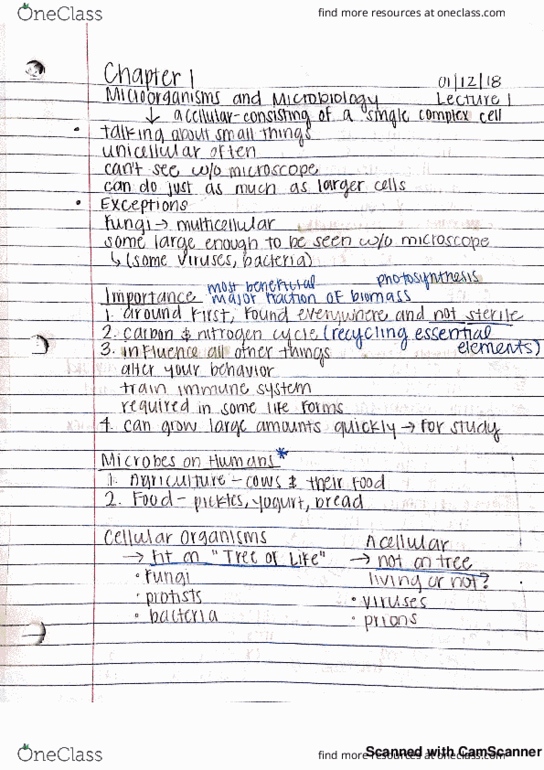 OneClass
find more resources at oneclass.com
Chapter 1
01/12/18
Microorganisms and Microbiology
Lecture 1
↓ acellular-consisting of a single complex cell
• talking about small things
unicellular often
can't see w/o microscope
can do just as much as larger cells
• Exceptions
Fungi → multicellular
some large enough to be seen w/o microscope
↳ (some viruses, bacteria)
most beneficial
photosynthesis
Importance major fraction of biomass
1. around first, found everywhere and not sterile
2. carbon & nitrogen cycle (recycling essential elements)
3. influence all other things
alter your behavior
train immune system
required in some life forms
4. can grow large amounts quickly → for study
Microbes on Humans *
1. Agriculture - cows & their food
2. Food - pickles, yogurt, bread
Cellular Organisms
→ fit on "Tree of Life"
• fungi
• protists
• bacteria
Acellular
→ not on tree
living or not?
• viruses
• prions
OneClass
find more resources at oneclass.com
Scanned with CamScanner